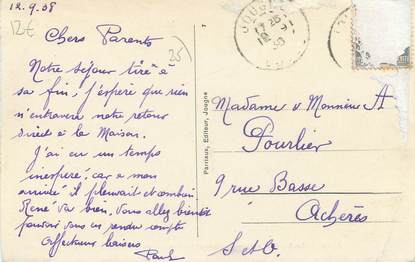 12.9.38
12€
25
Chers Parents
Notre séjour tire à
sa fin, j'espère que rien
n'entravera notre retour
direct à la Maison.
J'ai eu un temps
inespéré, car a mon
arrivée il pleuvait et combien
René va bien, vous allez bientôt
pouvoir vous en rendre compte
Affectueux baisers
Paul
Parriaux, Editeur, Jougne
JOUGNE
Madame & Monsieur A
Pourlier
9 rue Basse
Achères
S et O.